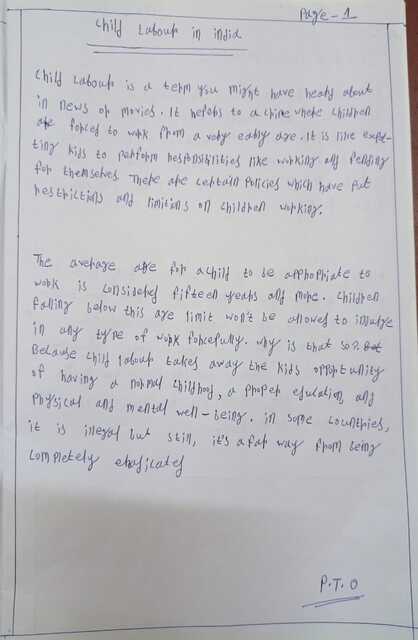 Page-1
Child Labour in india
Child Labour is a term you might have heard about
in news or movies. It refers to a crime where children
are forced to work from a very early age. It is like expec-
ting kids to perform responsibilities like working and fending
for themselves There are certain policies which have put
restrictions and limitions on children working.
The average age for a child to be appropriate to
work is considered fifteen years and more. children
falling below this age limit won't be allowed to indulge
in any type of work forcefully. why is that so?
Because child labour takes away the kids opportunity
of having a normal childhood, a proper education, and
physical and mental well-being. in some countries,
it is illegal but still, it's a far way from being
completely eradicated
P.T.O